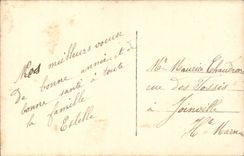 Nos meilleurs voeux
de bonne année et de
bonne santé à toute
la famille
Estelle
Mr Maurice Chaudron
rue des Fossés
à Joinville
Hte Marne